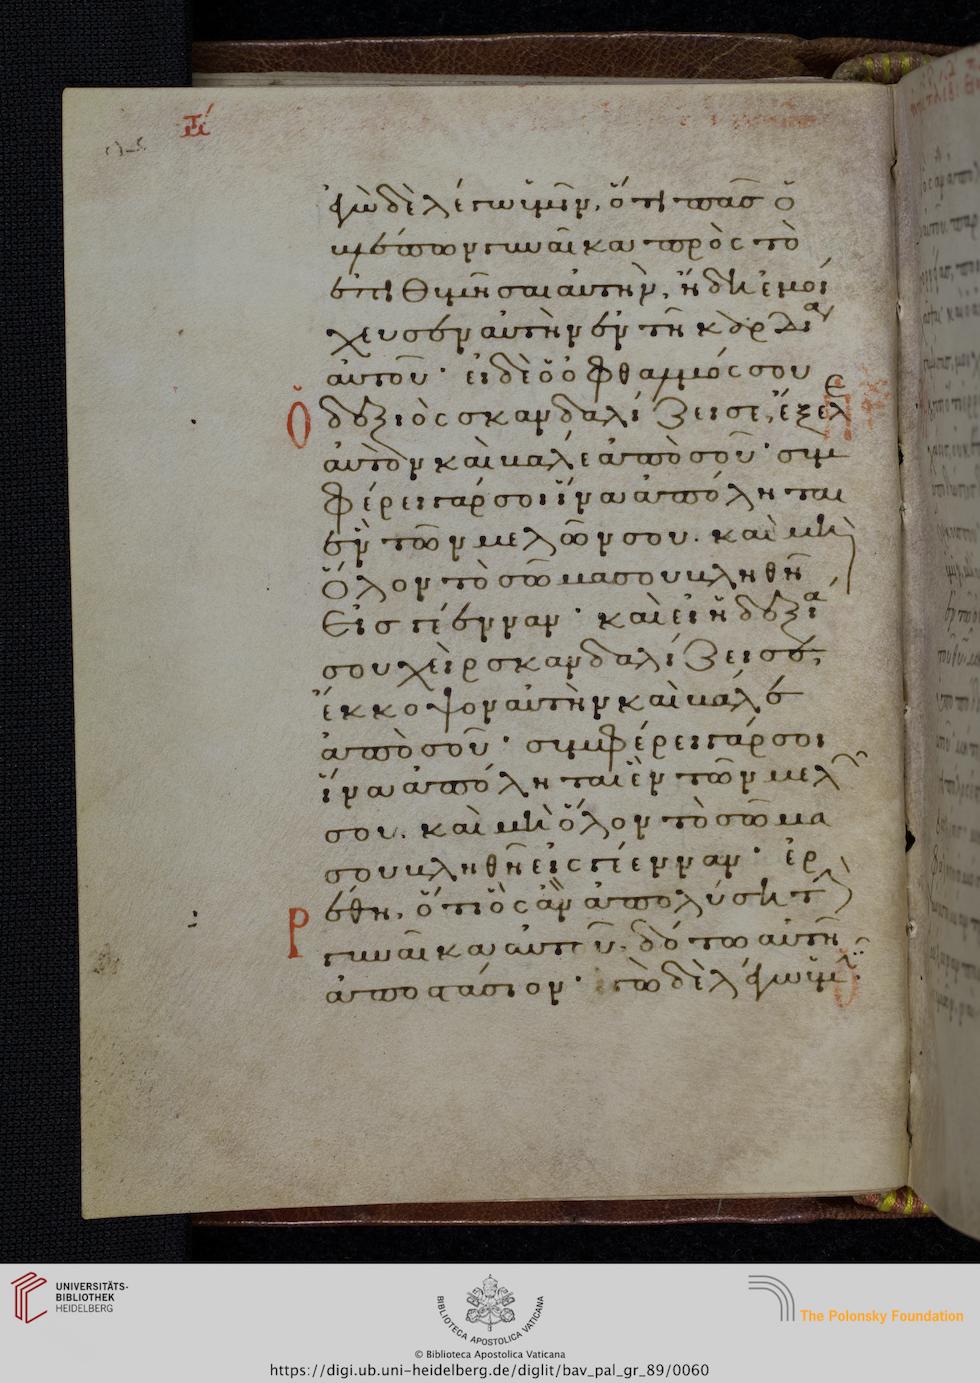 ἐγὼ δὲ λέγω ὑμῖν, ὅτι πᾶς ὁ
βλέπων γυναῖκα πρὸς τὸ
ἐπιθυμῆσαι αὐτὴν, ἤδη ἐμοί
χευσεν αὐτὴν ἐν τῆ καρδία
αὐτοῦ· εἰ δὲ ὁ ὀφθαλμός σου
ὁ δεξιὸς σκανδαλίζει σε, ἔξελε
αὐτὸν καὶ βάλε ἀπὸ σοῦ· συμ
φέρει γάρ σοι ἵνα ἀπόληται
ἓν τῶν μελῶν σου. καὶ μὴ
ὅλον τὸ σῶμα σου βληθῆ
εἰς γέενναν· καὶ εἰ ἡ δεξιά
σου χεὶρ σκανδαλίζει σε,
ἔκκοψον αὐτὴν καὶ βάλε
ἀπὸ σοῦ· συμφέρει γάρ σοι
ἵνα ἀπόληται ἓν τῶν μελῶν
σου. καὶ μὴ ὅλον τὸ σῶμα
σου βληθῆ εἰς γέενναν· ἐρ
ρέθη, ὅτι ὃς ἂν ἀπολύση τὴν
γυναῖκα αὐτοῦ. δότω αὐτῆ
ἀποστάσιον· ἐγὼ δὲ λέγω ὑμῖν
UNIVERSITÄTS-
BIBLIOTHEK
HEIDELBERG
BIBLIOTECA APOSTOLICA VATICANA
© Biblioteca Apostolica Vaticana
The Polonsky Foundation
https://digi.ub.uni-heidelberg.de/diglit/bav_pal_gr_89/0060